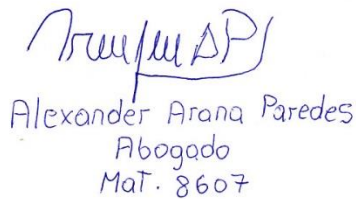 Alexander Arana Paredes
Abogado
Mat. 8607